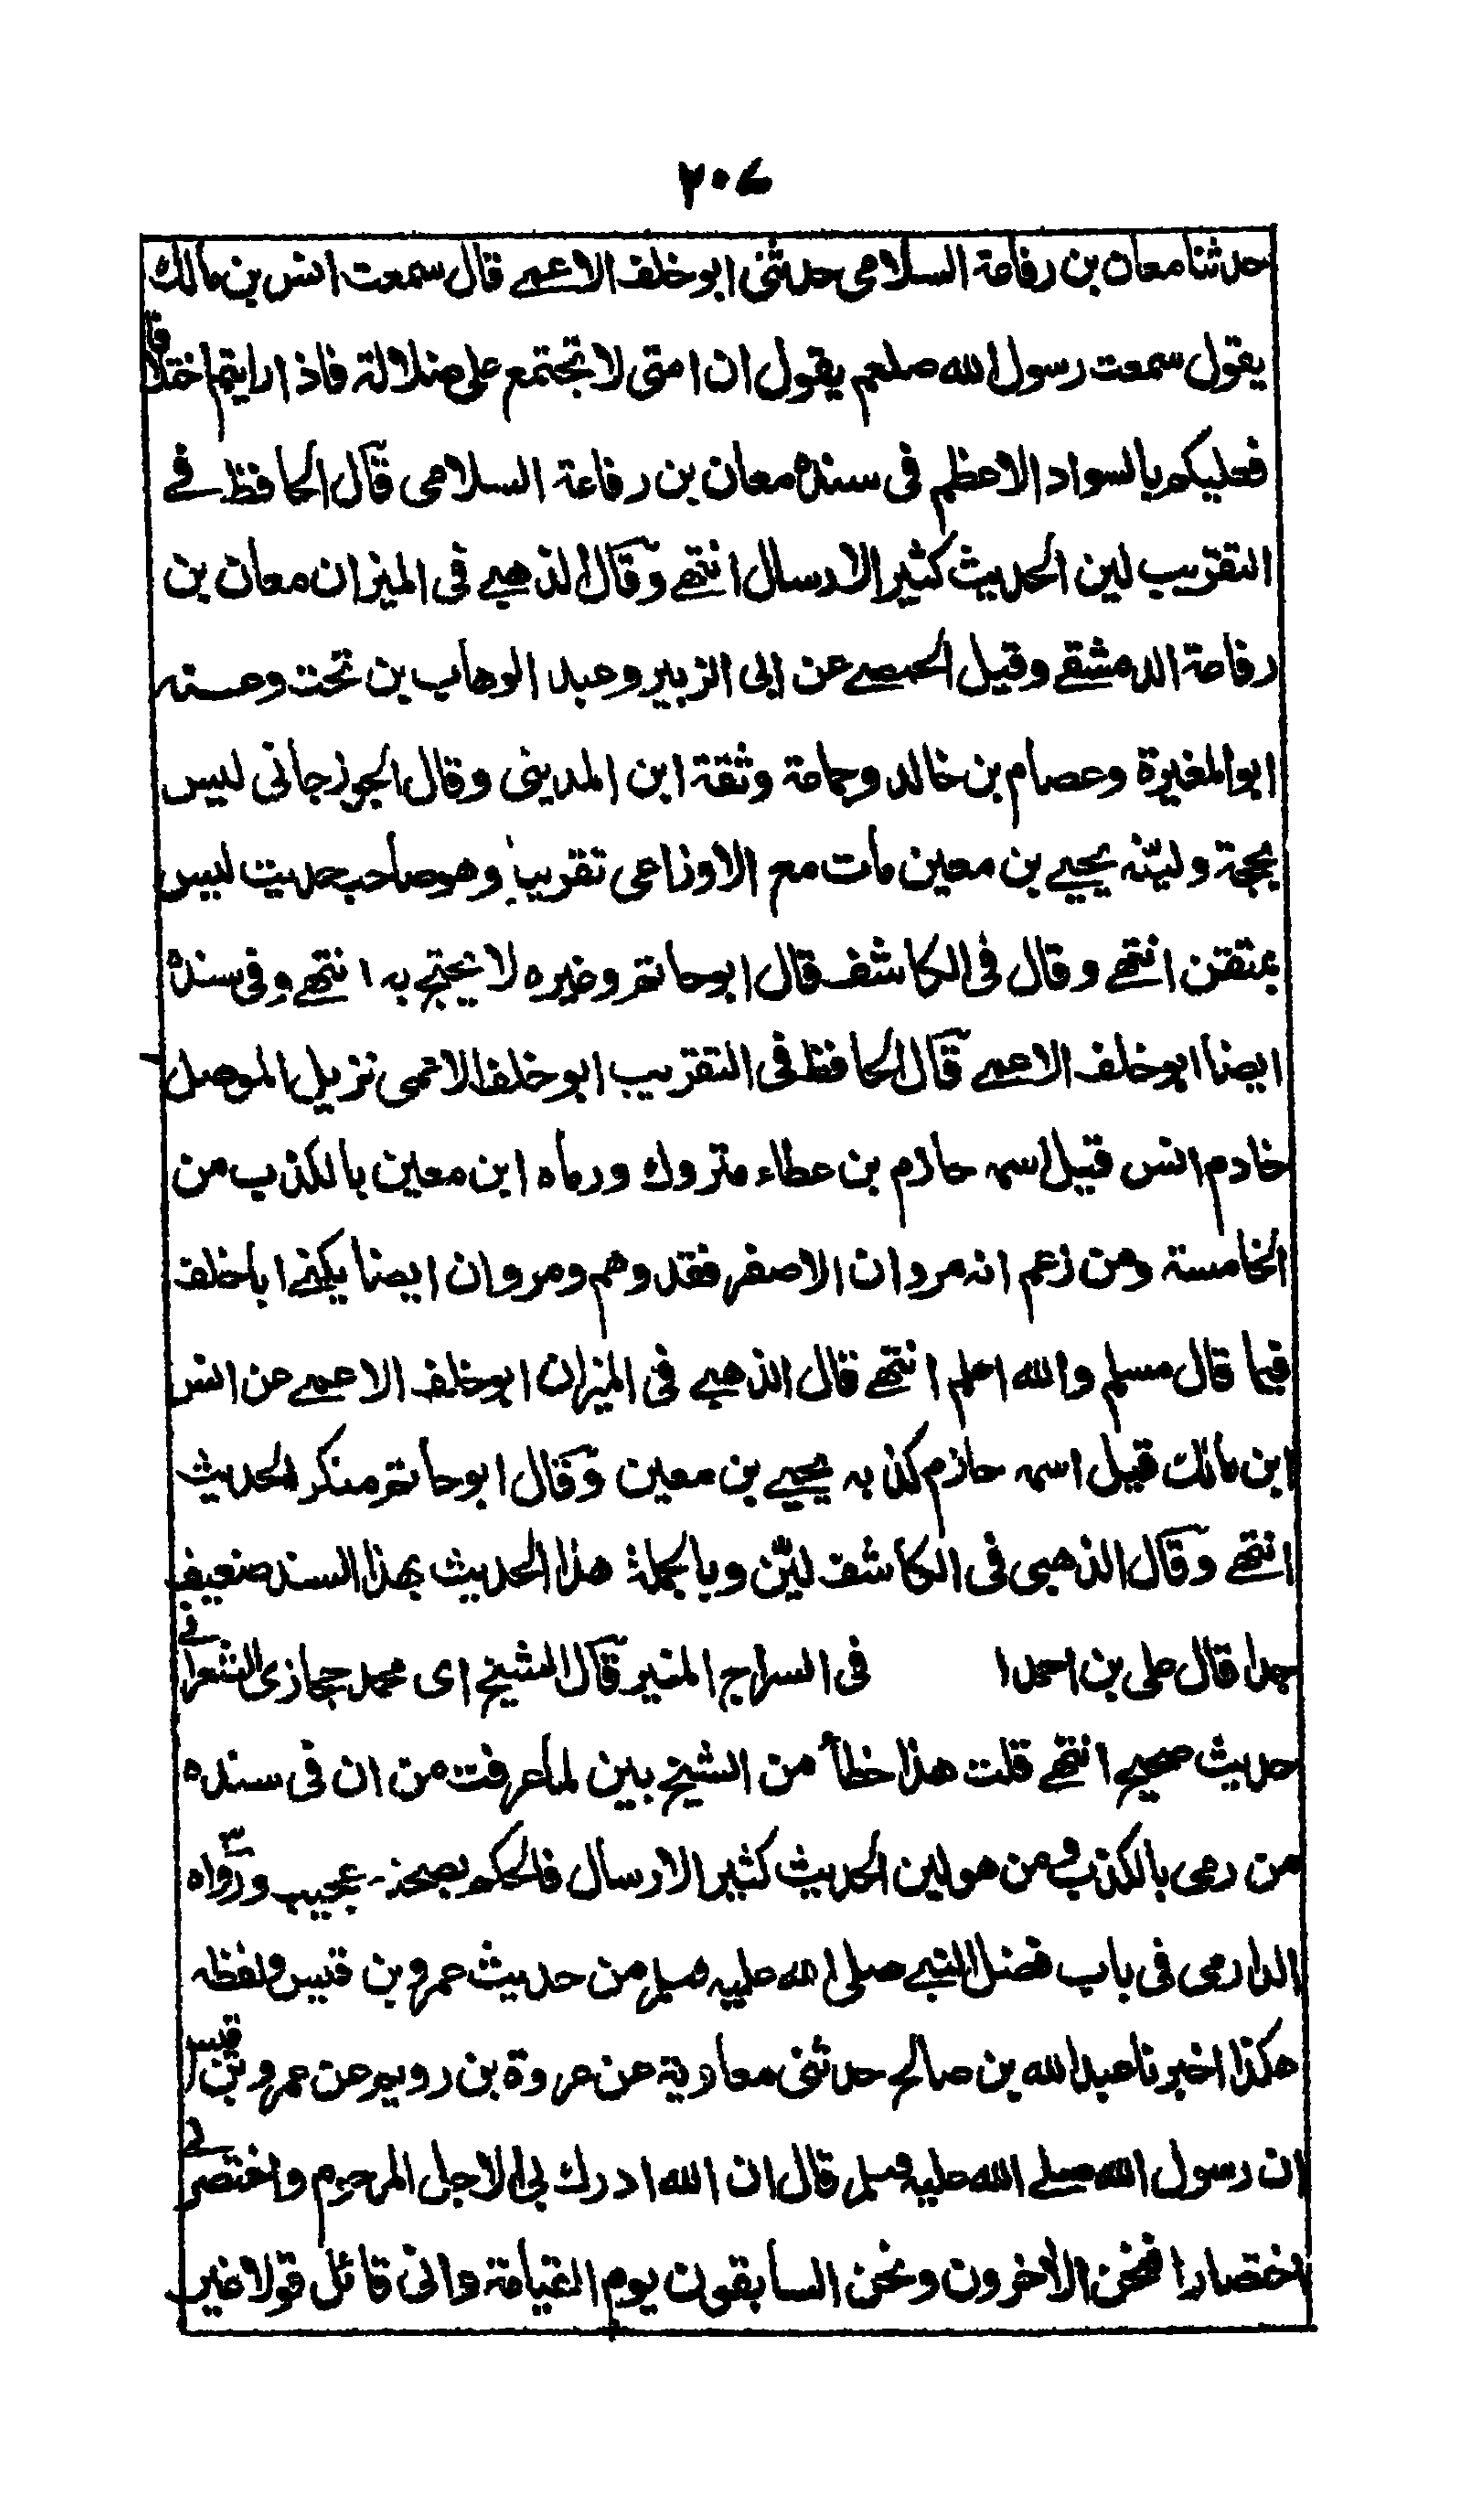 ٢٠٤
حدثنا معان بن رفاعة السلامى حدثنى ابو خلف الاعمے قال سمعت انس بن مالك
يقول سمعت رسول الله صلعم يقول ان امتى لا تجتمع على ضلالة فاذا رايتم اختلافا
فعليكم بالسواد الاعظم فى سنده معان بن رفاعة السلامى قال الحافظ فے
التقريب لين الحديث كثير الارسال انتهے وقال الذهبے فى الميزان معان بن
رفاعة الدمشقے وقيل الحمصے عن ابى الزبير وعبد الوهاب بن بخت وعنه
ابو المغيرة وعصام بن خالد وجماعة وثقة ابن المدينى وقال الجوزجانى ليس
بحجة ولينه يحيے بن معين مات مع الاوزاعى تقريبا وهو صاحب حديث ليس
بمتقن انتهے وقال فى الكاشف قال ابو حاتم وغيره لا يحتج به انتهے وفى سنده
ايضا ابو خلف الاعمے قال الحافظ فى التقريب ابو خلف الاعمى نزيل الموصل
خادم انس قيل اسمه حازم بن عطاء متروك ورماه ابن معين بالكذب من
الخامسة ومن زعم انه مروان الاصفر فقد وهم ومروان ايضا يكنے ابا خلف
فيما قال مسلم والله اعلم انتهے قال الذهبے فى الميزان ابو خلف الاعمے عن انس
ابن مالك قيل اسمه حازم كذبه يحيے بن معين وقال ابو حاتم منكر الحديث
انتهے وقال الذهبى فى الكاشف لين وبالجملة هذا الحديث بهذا السند ضعيف
جدا قال على بن احمد ا فى السراج المنير قال الشيخ اى محمد حجازى الشعرانے
حديث صحيح انتهے قلت هذا خطأ من الشيخ بين لما عرفت من ان فى سنده
من رمى بالكذب ومن هو لين الحديث كثير الارسال فالحكم بصحته عجيب ورواه
الدارمى فى باب فضل النبے صلى الله عليه وسلم من حديث عمرو بن قيس ولفظه
هكذا اخبرنا عبد الله بن صالح حدثنى معاوية عن عروة بن رويم عن عمرو بن قيس
ان رسول الله صلے الله عليه وسلم قال ان الله ادرك بى الاجل المرحوم واختصر لے
اختصارا فنحن الآخرون ونحن السابقون يوم القيامة وانى قائل قولا غير